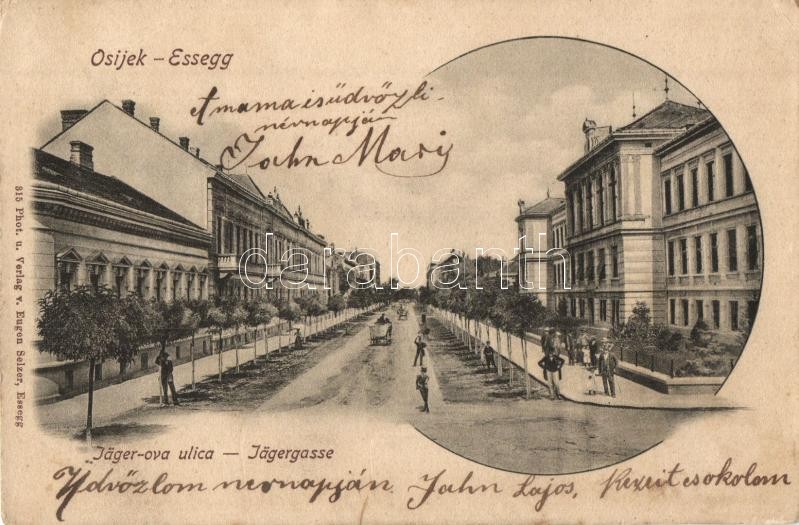 Osijek – Essegg
A mama is üdvözli
névnapján
Jahn Mari
315 Phot. u. Verlag v. Eugen Selzer, Essegg
darabanth
Jäger-ova ulica — Jägergasse
Üdvözlom nevnapján. Jahn Lajos, Kezeit csokolom